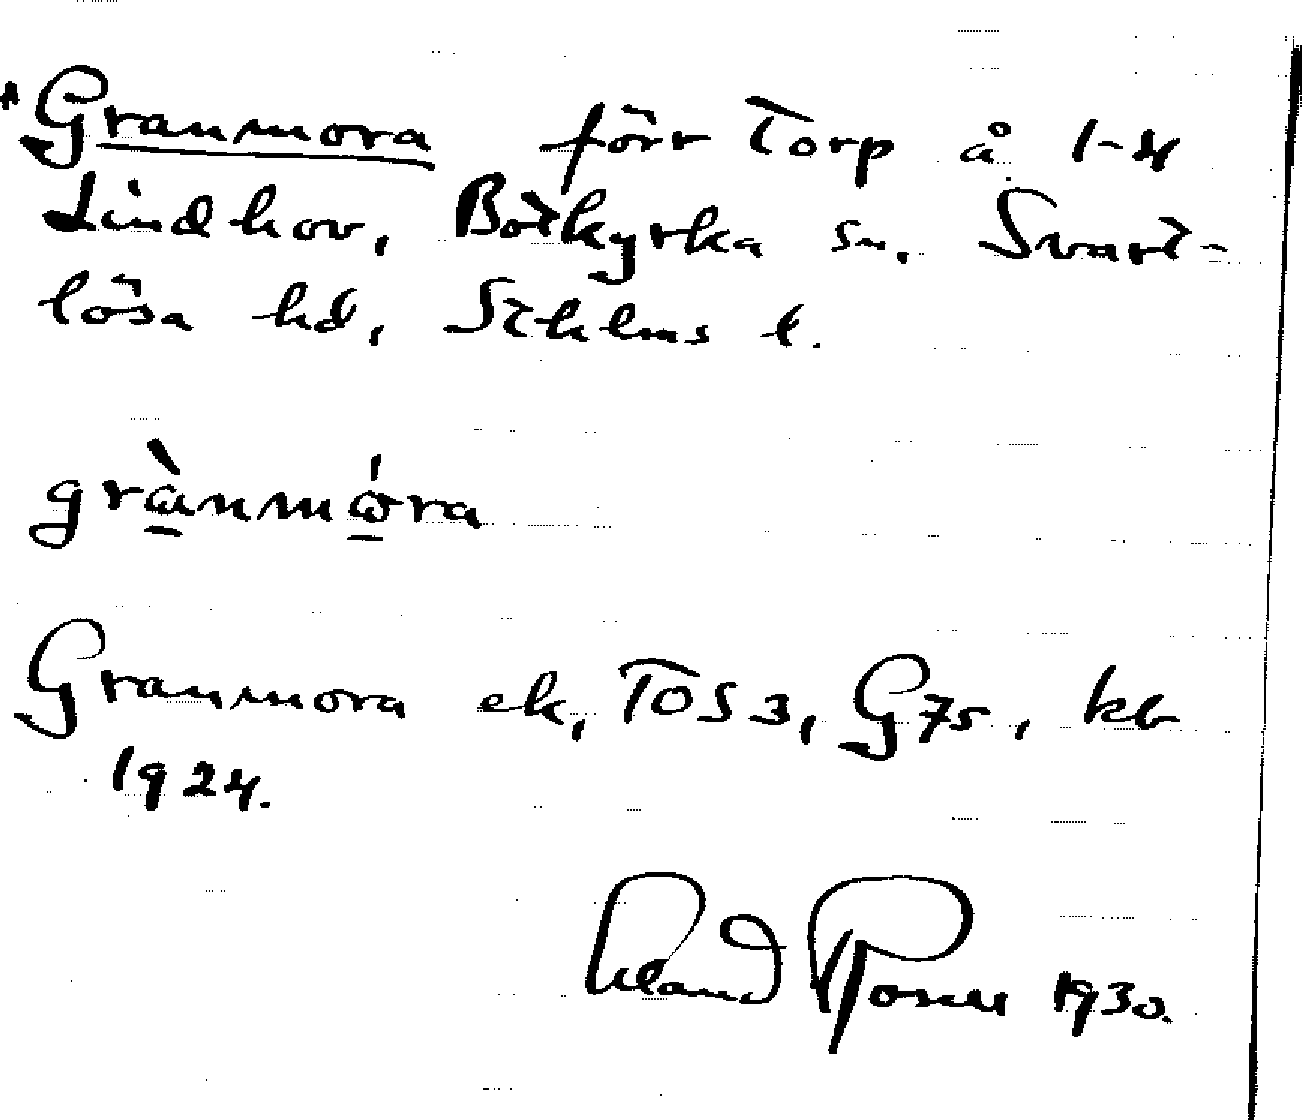 Granmora förr Torp å 1-4
Lindhov, Botkyrka sn, Svart-
lösa hd, Sthlms l.
grànmóra
Granmora ek, TOS3, G75, kb
1924.
1930.